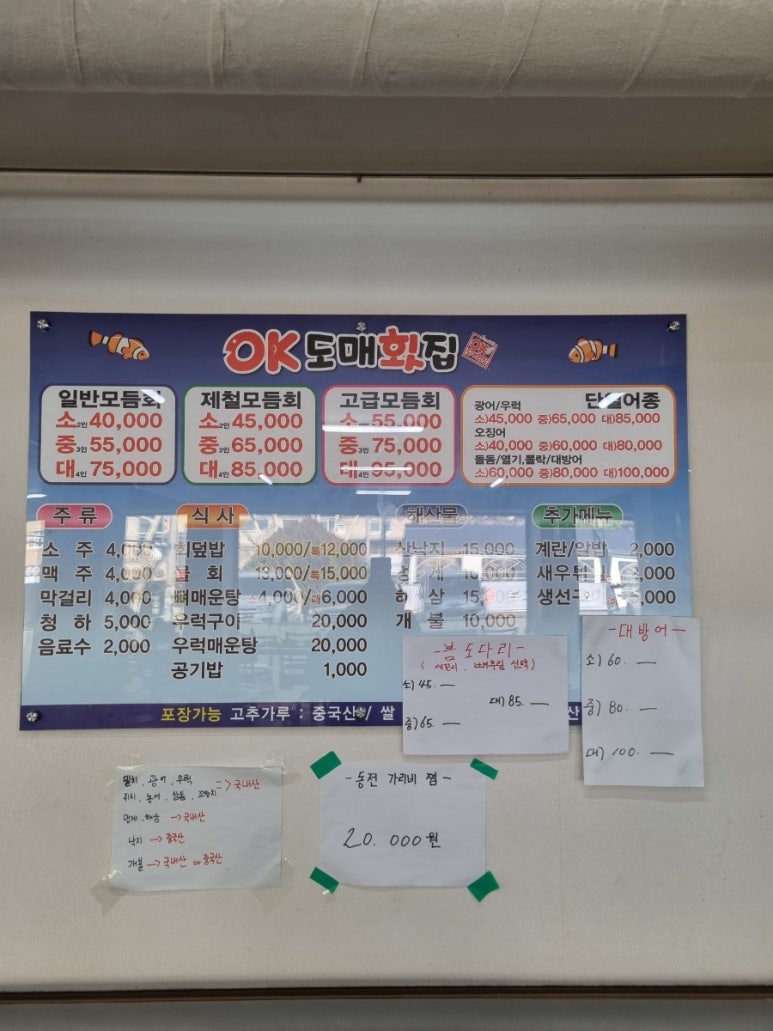 OK도매횟집
일반모듬회
소2인 40,000
중3인 55,000
대4인 75,000
제철모듬회
소2인 45,000
중3인 65,000
대4인 85,000
고급모듬회
소2인 55,000
중3인 75,000
대4인 95,000
단일어종
광어/우럭
소)45,000 중)65,000 대)85,000
오징어
소)40,000 중)60,000 대)80,000
돌돔/열기,뽈락/대방어
소)60,000 중)80,000 대)100,000
주류
소 주 4,000
맥 주 4,000
막걸리 4,000
청 하 5,000
음료수 2,000
식사
회덮밥 10,000/특12,000
물 회 13,000/특15,000
뼈매운탕 소4,000/대6,000
우럭구이 20,000
우럭매운탕 20,000
공기밥 1,000
해산물
산낙지 15,000
멍 게 10,000
해 삼
개 불 10,000
추가메뉴
계란/알밥 2,000
새우튀
생선구
포장가능 고추가루 : 중국산 / 쌀
산
-봄도다리-
(세꼬시, 뼈추림 선택)
소) 45. —
대) 85. —
중) 65. —
-대방어-
소) 60. —
중) 80. —
대) 100. —
광어, 우럭
=> 국내산
멍게, 해삼 -> 국내산
낙지 -> 중국산
개불 -> 국내산 or 중국산
-동전 가리비 찜-
20.000원